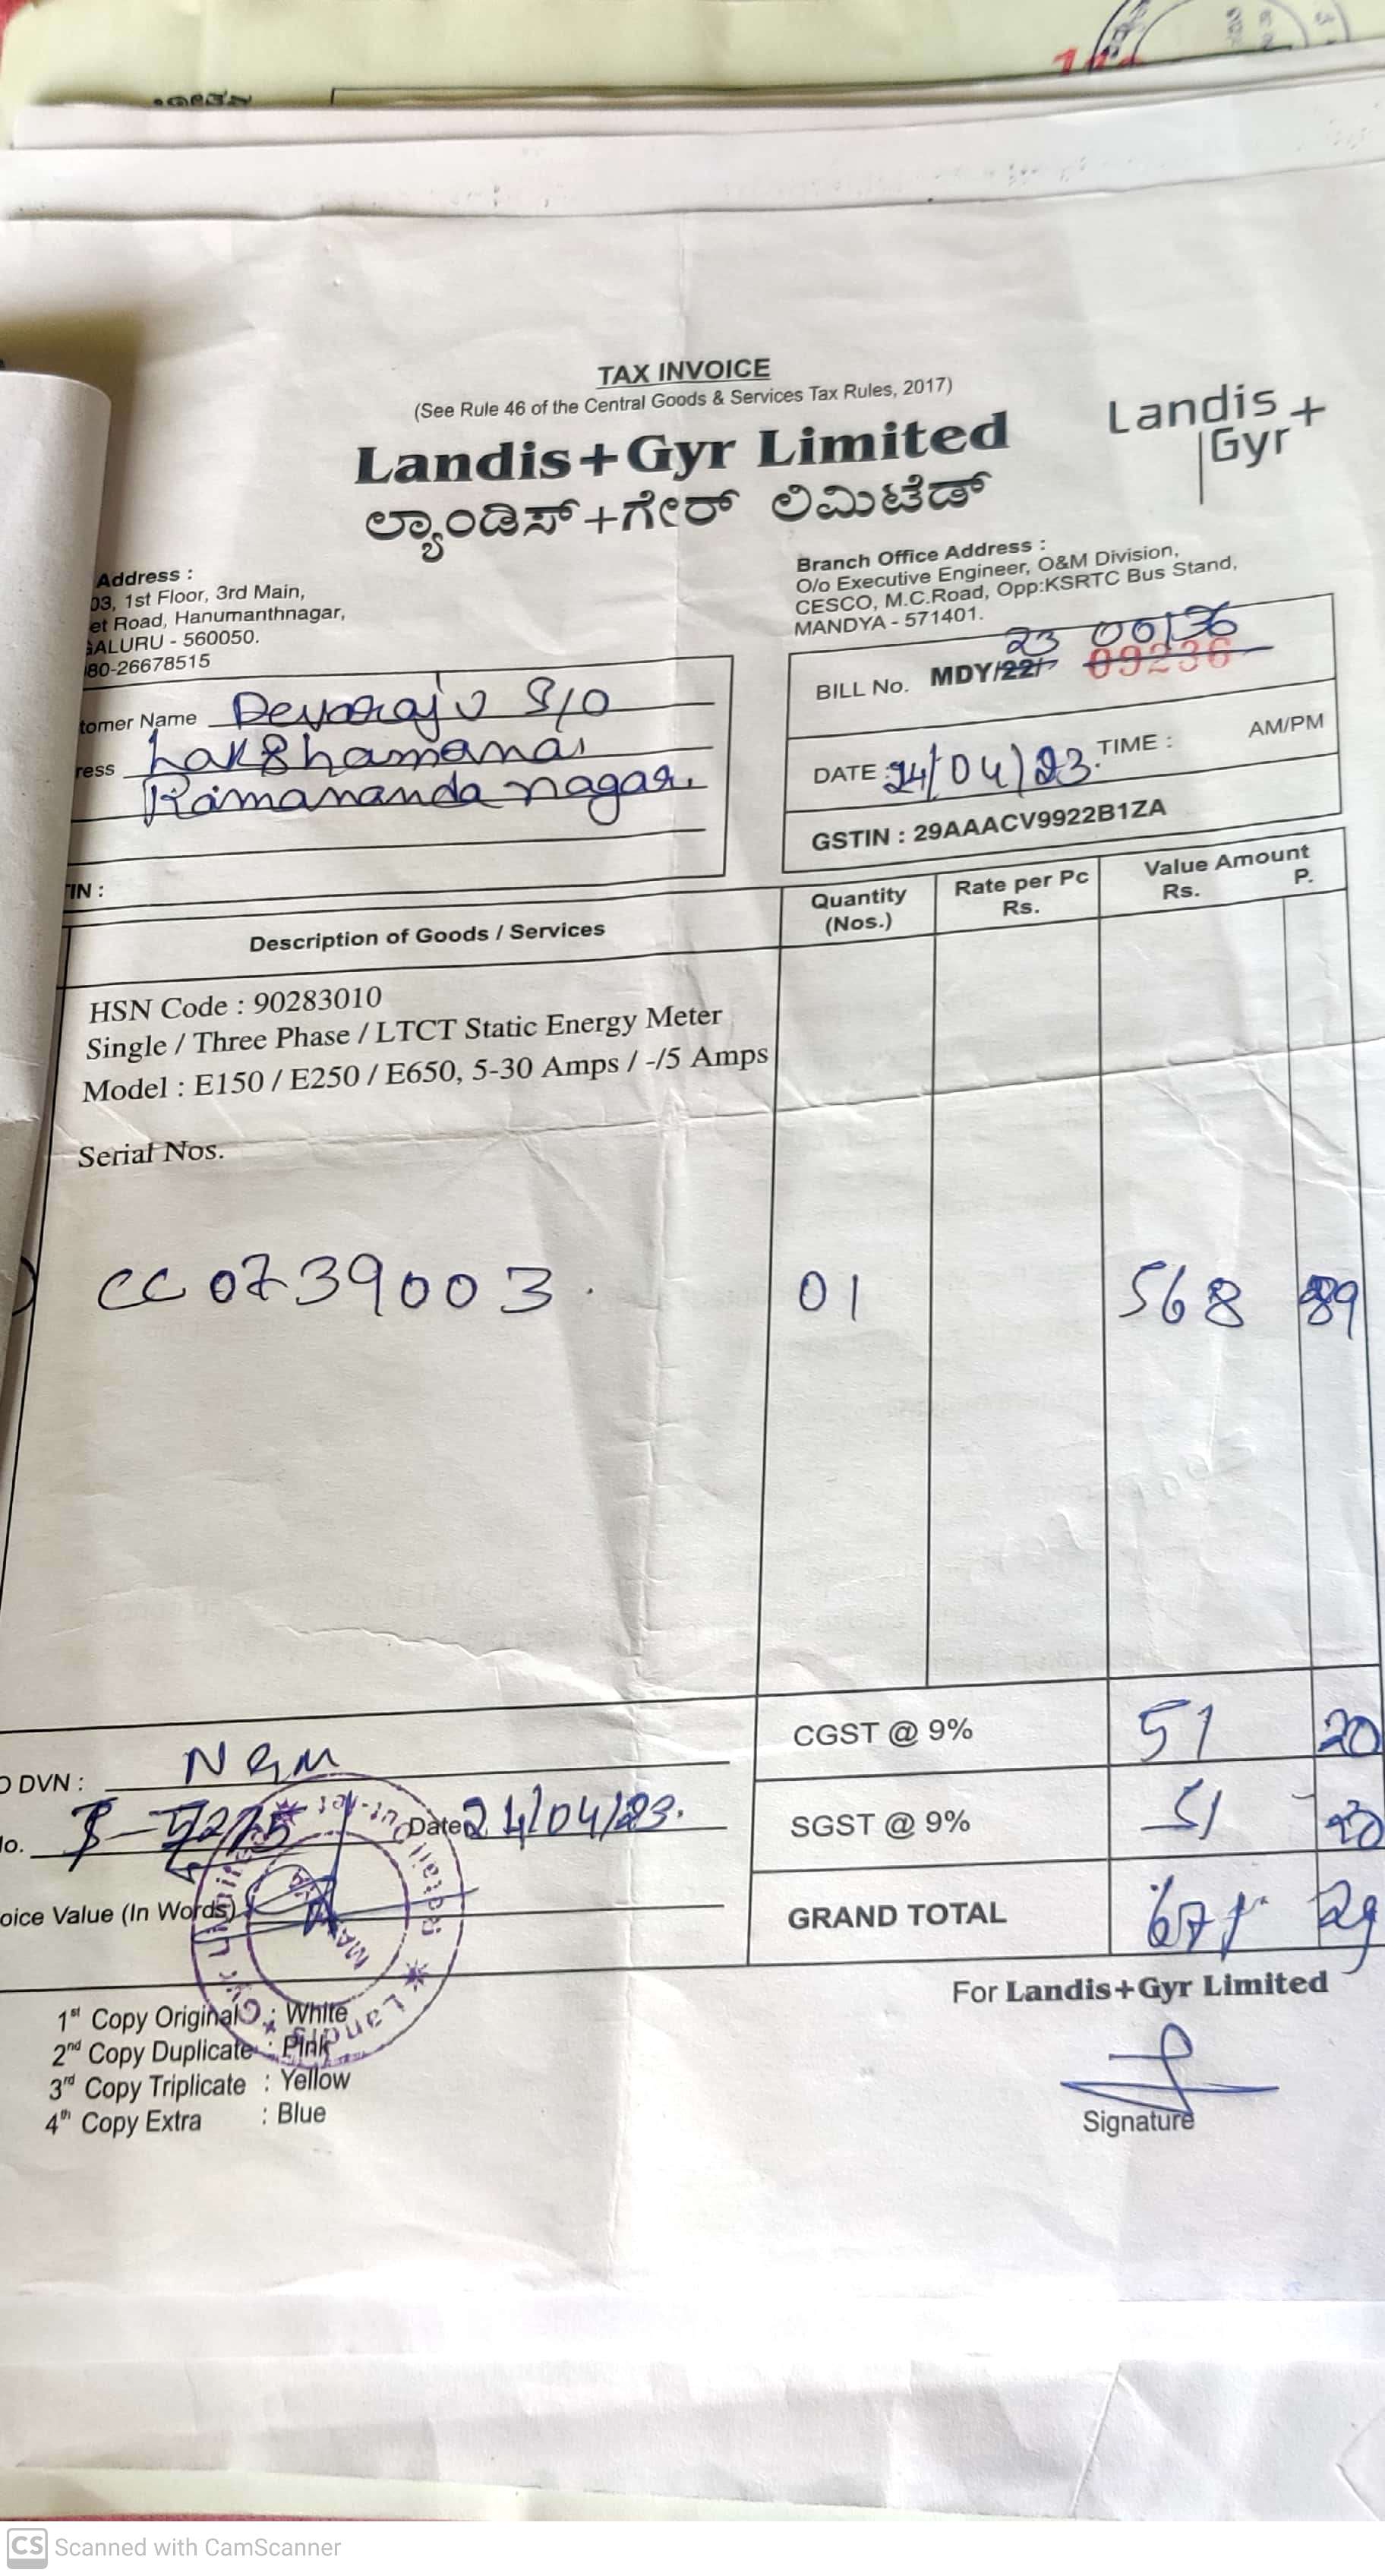 TAX INVOICE
(See Rule 46 of the Central Goods & Services Tax Rules, 2017)
Landis+Gyr Limited
ಲ್ಯಾಂಡಿಸ್+ಗೇರ್ ಲಿಮಿಟೆಡ್
Landis+
Gyr
Address :
03, 1st Floor, 3rd Main,
et Road, Hanumanthnagar,
GALURU - 560050.
80-26678515
Branch Office Address :
O/o Executive Engineer, O&M Division,
CESCO, M.C.Road, Opp:KSRTC Bus Stand,
MANDYA - 571401.
tomer Name Devaraju S/O
ress Lakshamana
Ramananda nagar.
TIN :
23 00136
BILL No. MDY/22/- 09236
DATE : 24/04/23. TIME : AM/PM
GSTIN : 29AAACV9922B1ZA
Description of Goods / Services Quantity (Nos.) Rate per Pc Rs. Value Amount Rs. P.
HSN Code : 90283010
Single / Three Phase / LTCT Static Energy Meter
Model : E150 / E250 / E650, 5-30 Amps / -/5 Amps
Serial Nos.
CC0739003. 01 568 89
CGST @ 9% 51 20
O DVN : NGM
SGST @ 9% 51 20
lo. Date 24/04/23.
oice Value (In Words)
GRAND TOTAL 671 29
For Landis+Gyr Limited
1st Copy Original : White
2nd Copy Duplicate : Pink
3rd Copy Triplicate : Yellow
4th Copy Extra : Blue
Signature
CS Scanned with CamScanner